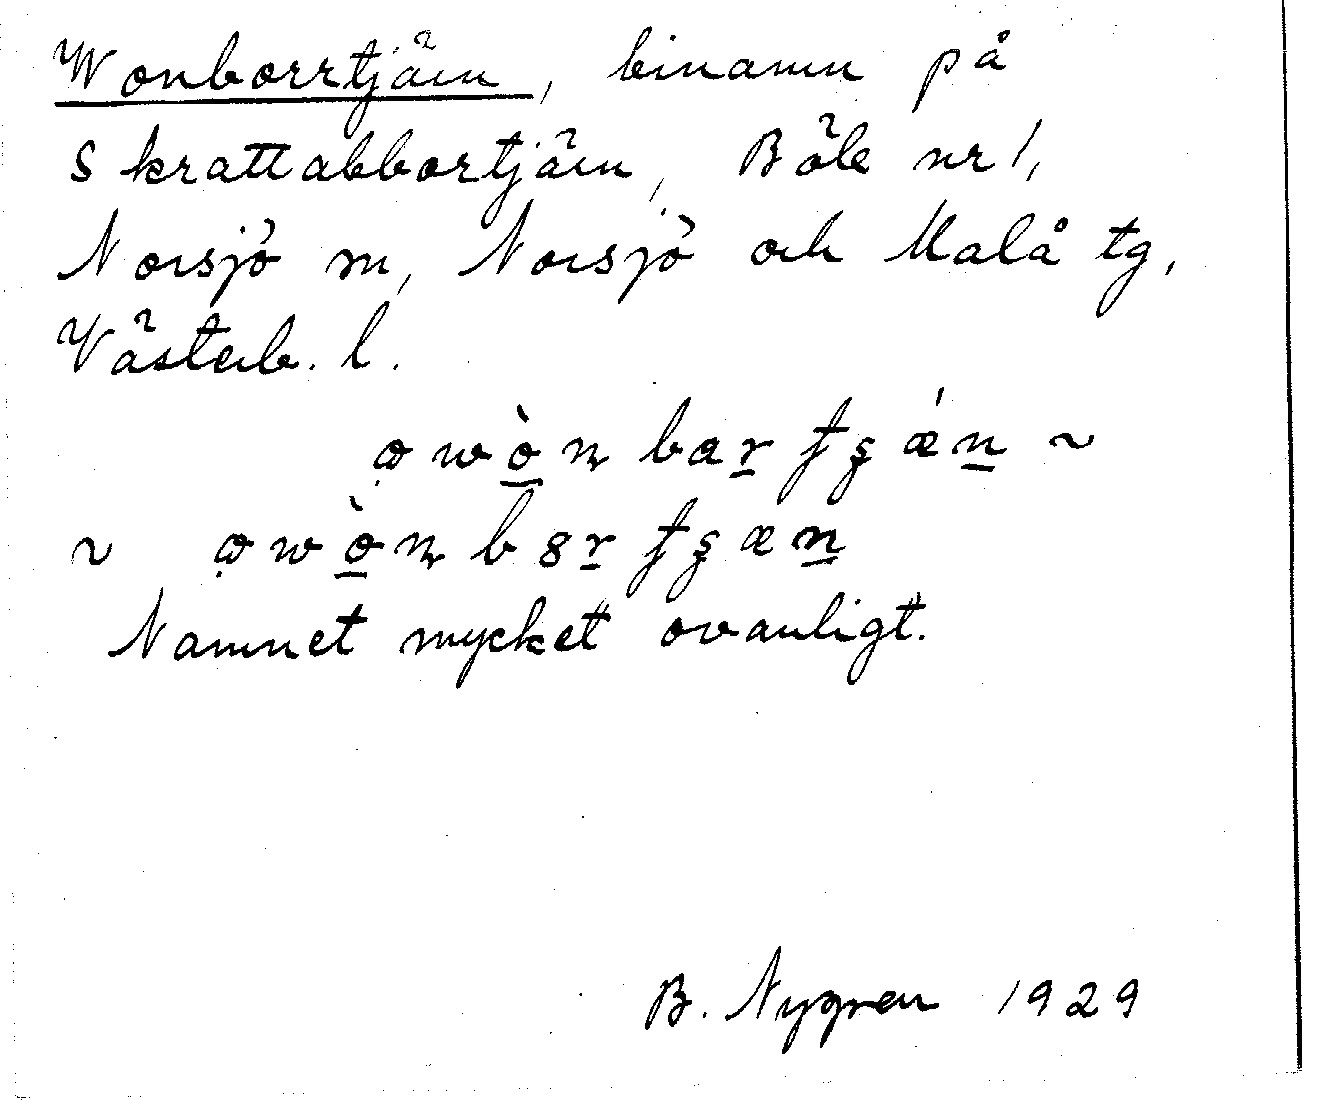 Wonborrtjärn, binamn på
Skrattabbortjärn, Böle nr 1,
Norsjö sn, Norsjö och Malå tg,
Västerb. l.
~
~
Namnet mycket ovanligt.
B. Nygren 1929